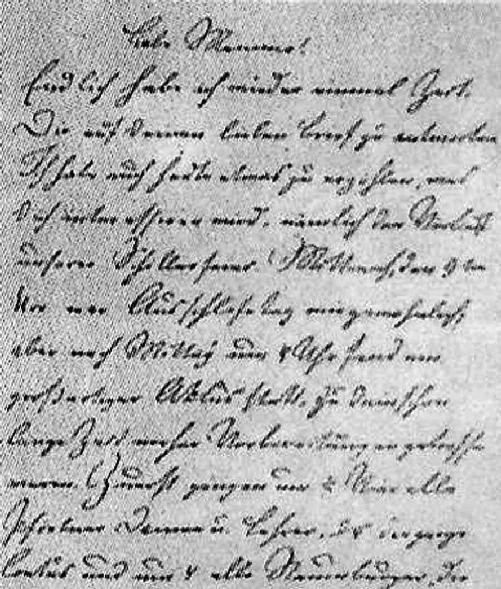 Liebe Mamma!
Endlich habe ich wieder einmal Zeit,
Dir auf Deinen lieben Brief zu antworten.
Ich habe auch heute etwas zu erzählen, was
Dich interessieren wird, nämlich den Verlauf
unserer Schillerfeier. Mittwoch, den 9ten
Vor
aber nach Mittag um 4 Uhr fand ein
großartiger Aktus statt, zu dem schon
lange Zeit vorher Vorbereitungen getroffen
waren. Zuerst gingen um 2 Uhr alle
Damen u. Lehrer, der ganze
Coetus und um 4 alle Naumburger, die